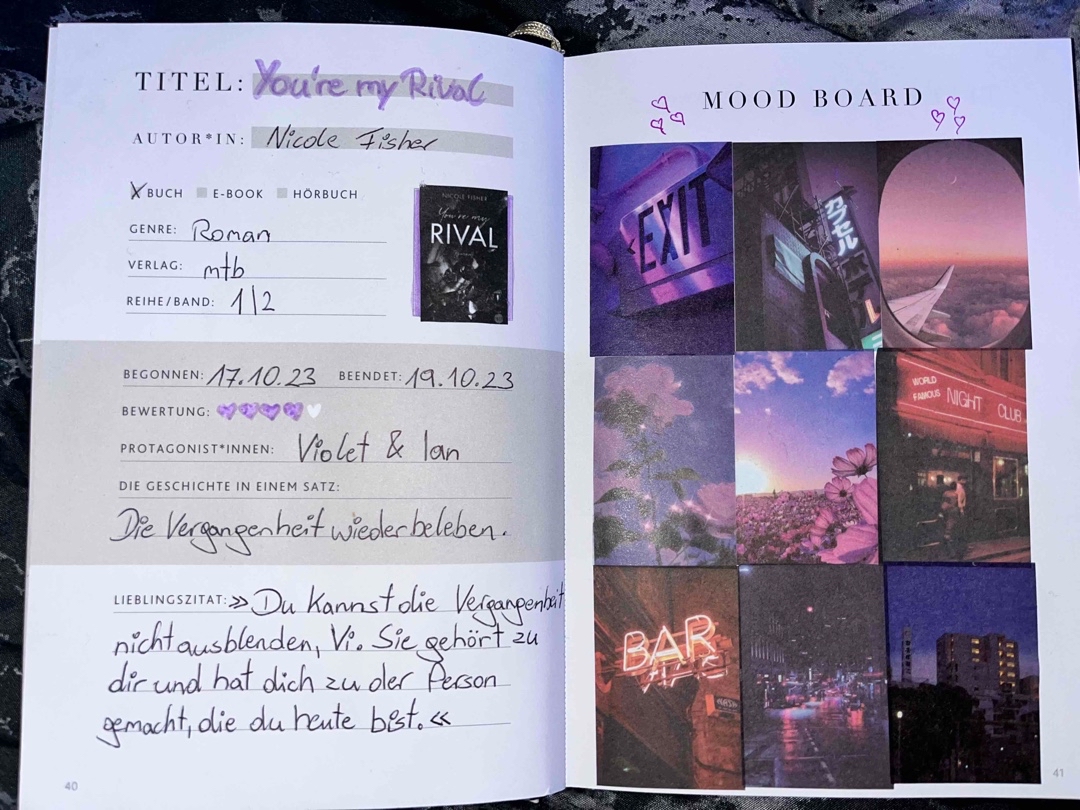 TITEL: You're my Rival
AUTOR*IN: Nicole Fisher
X BUCH E-BOOK HÖRBUCH
GENRE: Roman
VERLAG: mtb
REIHE/BAND: 1|2
NICOLE FISHER
You're my
RIVAL
BEGONNEN: 17.10.23 BEENDET: 19.10.23
BEWERTUNG:
PROTAGONIST*INNEN: Violet & Ian
DIE GESCHICHTE IN EINEM SATZ:
Die Vergangenheit wiederbeleben.
LIEBLINGSZITAT: »Du kannst die Vergangenheit
nicht ausblenden, Vi. Sie gehört zu
dir und hat dich zu der Person
gemacht, die du heute bist.«
40
MOOD BOARD
EXIT
カプセル
WORLD
FAMOUS NIGHT CLUB
BAR
41